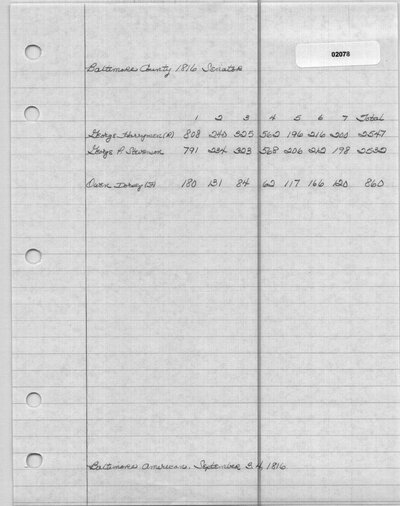 02078
Baltimore County 1816 Senator
1 2 3 4 5 6 7 Total
George Harryman (R) 808 240 325 562 196 216 200 2547
George P. Stevenson 791 234 323 568 206 212 198 2532
Owen Dorsey (F) 180 131 84 62 117 166 120 860
Baltimore American. September 3.4, 1816